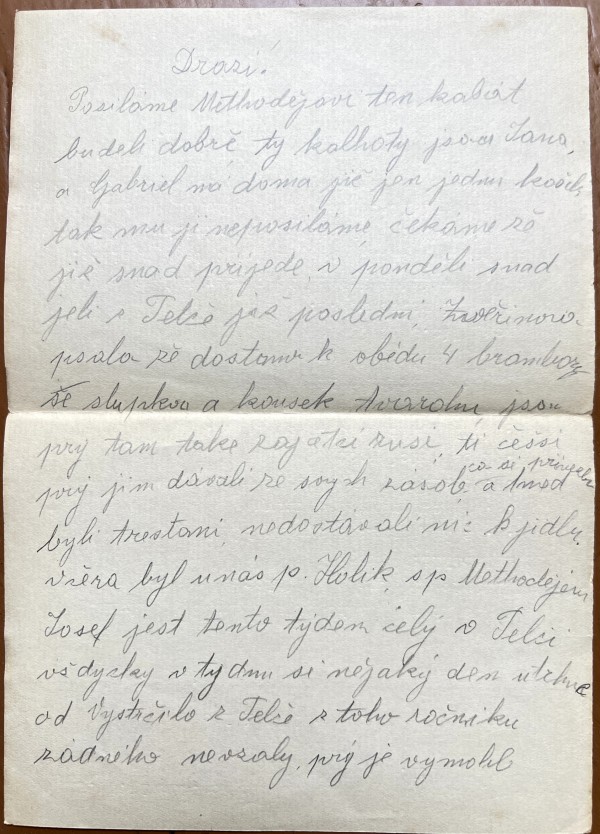 Drazí!
Posíláme Methodějovi ten kabát
budeli dobrě ty kalhoty jsou Jana,
a Gabriel má doma již jen jednu košeli
tak mu ji neposíláme, čekáme zě
již snad přijede, v ponděli snad
jeli z Telče již poslední, Zvěřinova
psala zě dostanou k obědu 4 brambory
še slupkou a kousek tvarohu, jsou
prý tam take zajatci rusi, ti češsi
prý jim dávali ze svých zásob, co si přivezli a hned
byli trestaní, nedostávali nic k jidlu.
včera byl unás p. Holik, s p. Methodějem
Josef jest tento týden celý v Telči
vśdycky v tydnu si nějaký den utrhne
od Vystrčilo z Telče z toho ročniku
žádného nevzaly, prý je vymohl